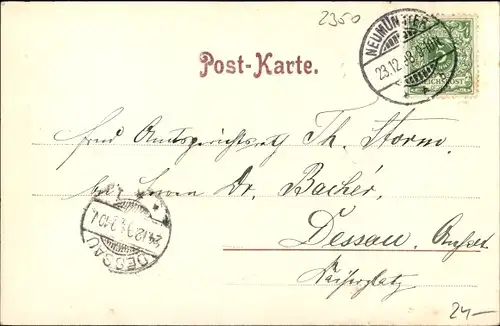 2350
NEUMÜNSTER
23.12.98
REICHSPOST
Post-Karte.
Amtsgerichtsrath Th. Storm.
bei Herrn Dr. Bachér.
Dessau, Anhalt.
Kaiserplatz
DESSAU
24.12.
24-